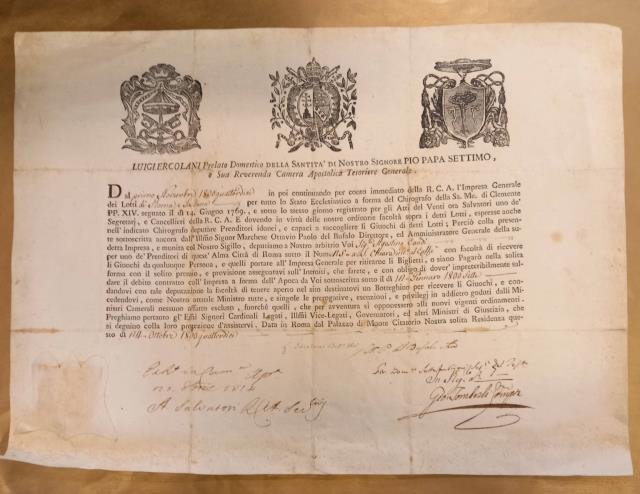 LUIGI ERCOLANI Prelato Domestico DELLA SANTITA' DI NOSTRO SIGNORE PIO PAPA SETTIMO,
e Sua Reverenda Camera Apostolica Tesoriere Generale.
Dal primo Novembre 1800quattordici in poi continuando per conto immediato della R. C. A. l'Impresa Generale
dei Lotti di Roma per tutto lo Stato Ecclesiastico a forma del Chirografo della Sa. Me. di Clemente
PP. XIV. segnato il dì 14. Giugno 1769., e sotto lo stesso giorno registrato per gli Atti del Venti ora Salvatori uno de'
Segretarj, e Cancellieri della R. C. A. E dovendo in virtù delle nostre ordinarie facoltà sopra i detti Lotti, espresse anche
nell'indicato Chirografo deputare Prenditori idonei, e capaci a raccogliere li Giuochi di detti Lotti; Perciò colla presen-
te sottoscritta ancora dall'Illmo Signor Marchese Ottavio Paolo del Bufalo Direttore, ed Amministratore Generale della su-
detta Impresa, e munita col Nostro Sigillo, deputiamo a Nostro arbitrio Voi Sig. Agostino
per uno de' Prenditori di quest' Alma Città di Roma sotto il Num. con facoltà di ricevere
li Giuochi da qualunque Persona, e quelli portare all'Impresa Generale per ritirarne li Biglietti, o siano Pagarò nella solita
forma con il solito premio, e provisione assegnatavi sull'Introiti, che farete, e con obligo di dover' impreteribilmente sal-
dare il debito contratto coll' Impresa a forma dell' Apoca da Voi sottoscritta sotto il dì Gennaro 1800
dandovi con tale deputazione la facoltà di tenere aperto nel sito destinatovi un Botteghino per ricevere li Giuochi, e con-
cedendovi, come Nostro attuale Ministro tutte, e singole le prerogative, esenzioni, e privilegj in addietro goduti dalli Mi-
nistri Camerali nessuno affatto escluso, fuorchè quelli, che per avventura si opponessero alli nuovi vigenti ordinamenti.
Preghiamo pertanto gli Emi Signori Cardinali Legati, Illmi Vice-Legati, Governatori, ed altri Ministri di Giustizia, che
si degnino colla loro propensione d'assistervi. Data in Roma dal Palazzo di Monte Cittorio Nostra solita Residenza que-
sto dì Ottobre 1800quattordici
1814
A Salvatori R. C. A. Sec